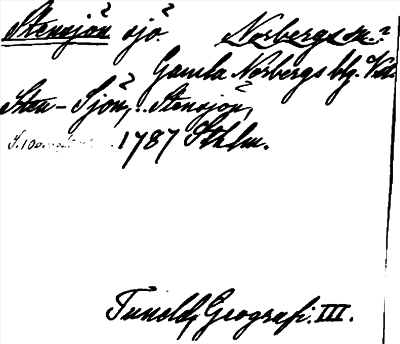 Stensjön sjö. Norbergs sn.?
Gamla Norbergs blg. o/Vtm
Sten-Sjön, .. Stensjön,
S. 10 1787 Sthlm.
Tuneld, Geografi. III.